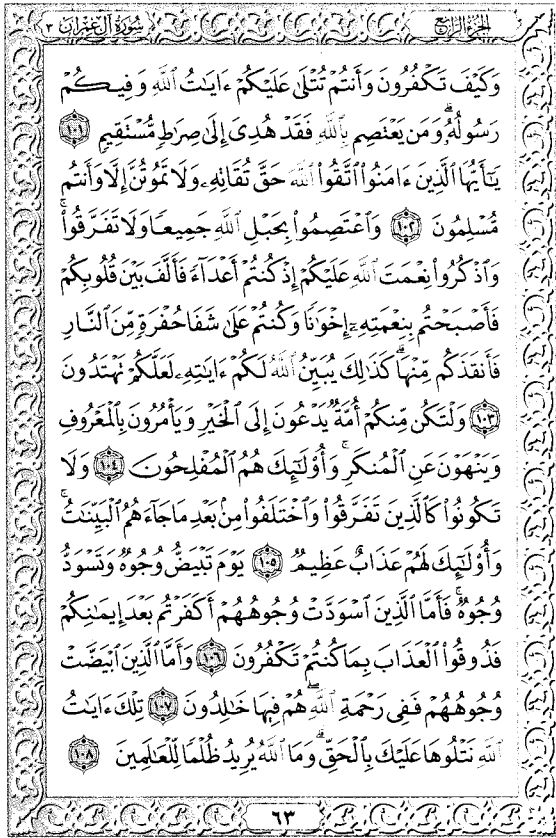 سُورَةُ آلِ عِمْرَان ٣
الجُزْءُ الرَّابِع
وَكَيْفَ تَكْفُرُونَ وَأَنتُمْ تُتْلَىٰ عَلَيْكُمْ ءَايَٰتُ ٱللَّهِ وَفِيكُمْ
رَسُولُهُۥۗ وَمَن يَعْتَصِم بِٱللَّهِ فَقَدْ هُدِىَ إِلَىٰ صِرَٰطٍ مُّسْتَقِيمٍ ١٠١
يَٰٓأَيُّهَا ٱلَّذِينَ ءَامَنُوا۟ ٱتَّقُوا۟ ٱللَّهَ حَقَّ تُقَاتِهِۦ وَلَا تَمُوتُنَّ إِلَّا وَأَنتُم
مُّسْلِمُونَ ١٠٢ وَٱعْتَصِمُوا۟ بِحَبْلِ ٱللَّهِ جَمِيعًا وَلَا تَفَرَّقُوا۟ۚ
وَٱذْكُرُوا۟ نِعْمَتَ ٱللَّهِ عَلَيْكُمْ إِذْ كُنتُمْ أَعْدَآءً فَأَلَّفَ بَيْنَ قُلُوبِكُمْ
فَأَصْبَحْتُم بِنِعْمَتِهِۦٓ إِخْوَٰنًا وَكُنتُمْ عَلَىٰ شَفَا حُفْرَةٍ مِّنَ ٱلنَّارِ
فَأَنقَذَكُم مِّنْهَاۗ كَذَٰلِكَ يُبَيِّنُ ٱللَّهُ لَكُمْ ءَايَٰتِهِۦ لَعَلَّكُمْ تَهْتَدُونَ
١٠٣ وَلْتَكُن مِّنكُمْ أُمَّةٌ يَدْعُونَ إِلَى ٱلْخَيْرِ وَيَأْمُرُونَ بِٱلْمَعْرُوفِ
وَيَنْهَوْنَ عَنِ ٱلْمُنكَرِۚ وَأُو۟لَٰٓئِكَ هُمُ ٱلْمُفْلِحُونَ ١٠٤ وَلَا
تَكُونُوا۟ كَٱلَّذِينَ تَفَرَّقُوا۟ وَٱخْتَلَفُوا۟ مِنۢ بَعْدِ مَا جَآءَهُمُ ٱلْبَيِّنَٰتُۚ
وَأُو۟لَٰٓئِكَ لَهُمْ عَذَابٌ عَظِيمٌ ١٠٥ يَوْمَ تَبْيَضُّ وُجُوهٌ وَتَسْوَدُّ
وُجُوهٌۚ فَأَمَّا ٱلَّذِينَ ٱسْوَدَّتْ وُجُوهُهُمْ أَكَفَرْتُم بَعْدَ إِيمَٰنِكُمْ
فَذُوقُوا۟ ٱلْعَذَابَ بِمَا كُنتُمْ تَكْفُرُونَ ١٠٦ وَأَمَّا ٱلَّذِينَ ٱبْيَضَّتْ
وُجُوهُهُمْ فَفِى رَحْمَةِ ٱللَّهِۖ هُمْ فِيهَا خَٰلِدُونَ ١٠٧ تِلْكَ ءَايَٰتُ
ٱللَّهِ نَتْلُوهَا عَلَيْكَ بِٱلْحَقِّۗ وَمَا ٱللَّهُ يُرِيدُ ظُلْمًا لِّلْعَٰلَمِينَ ١٠٨
٦٣